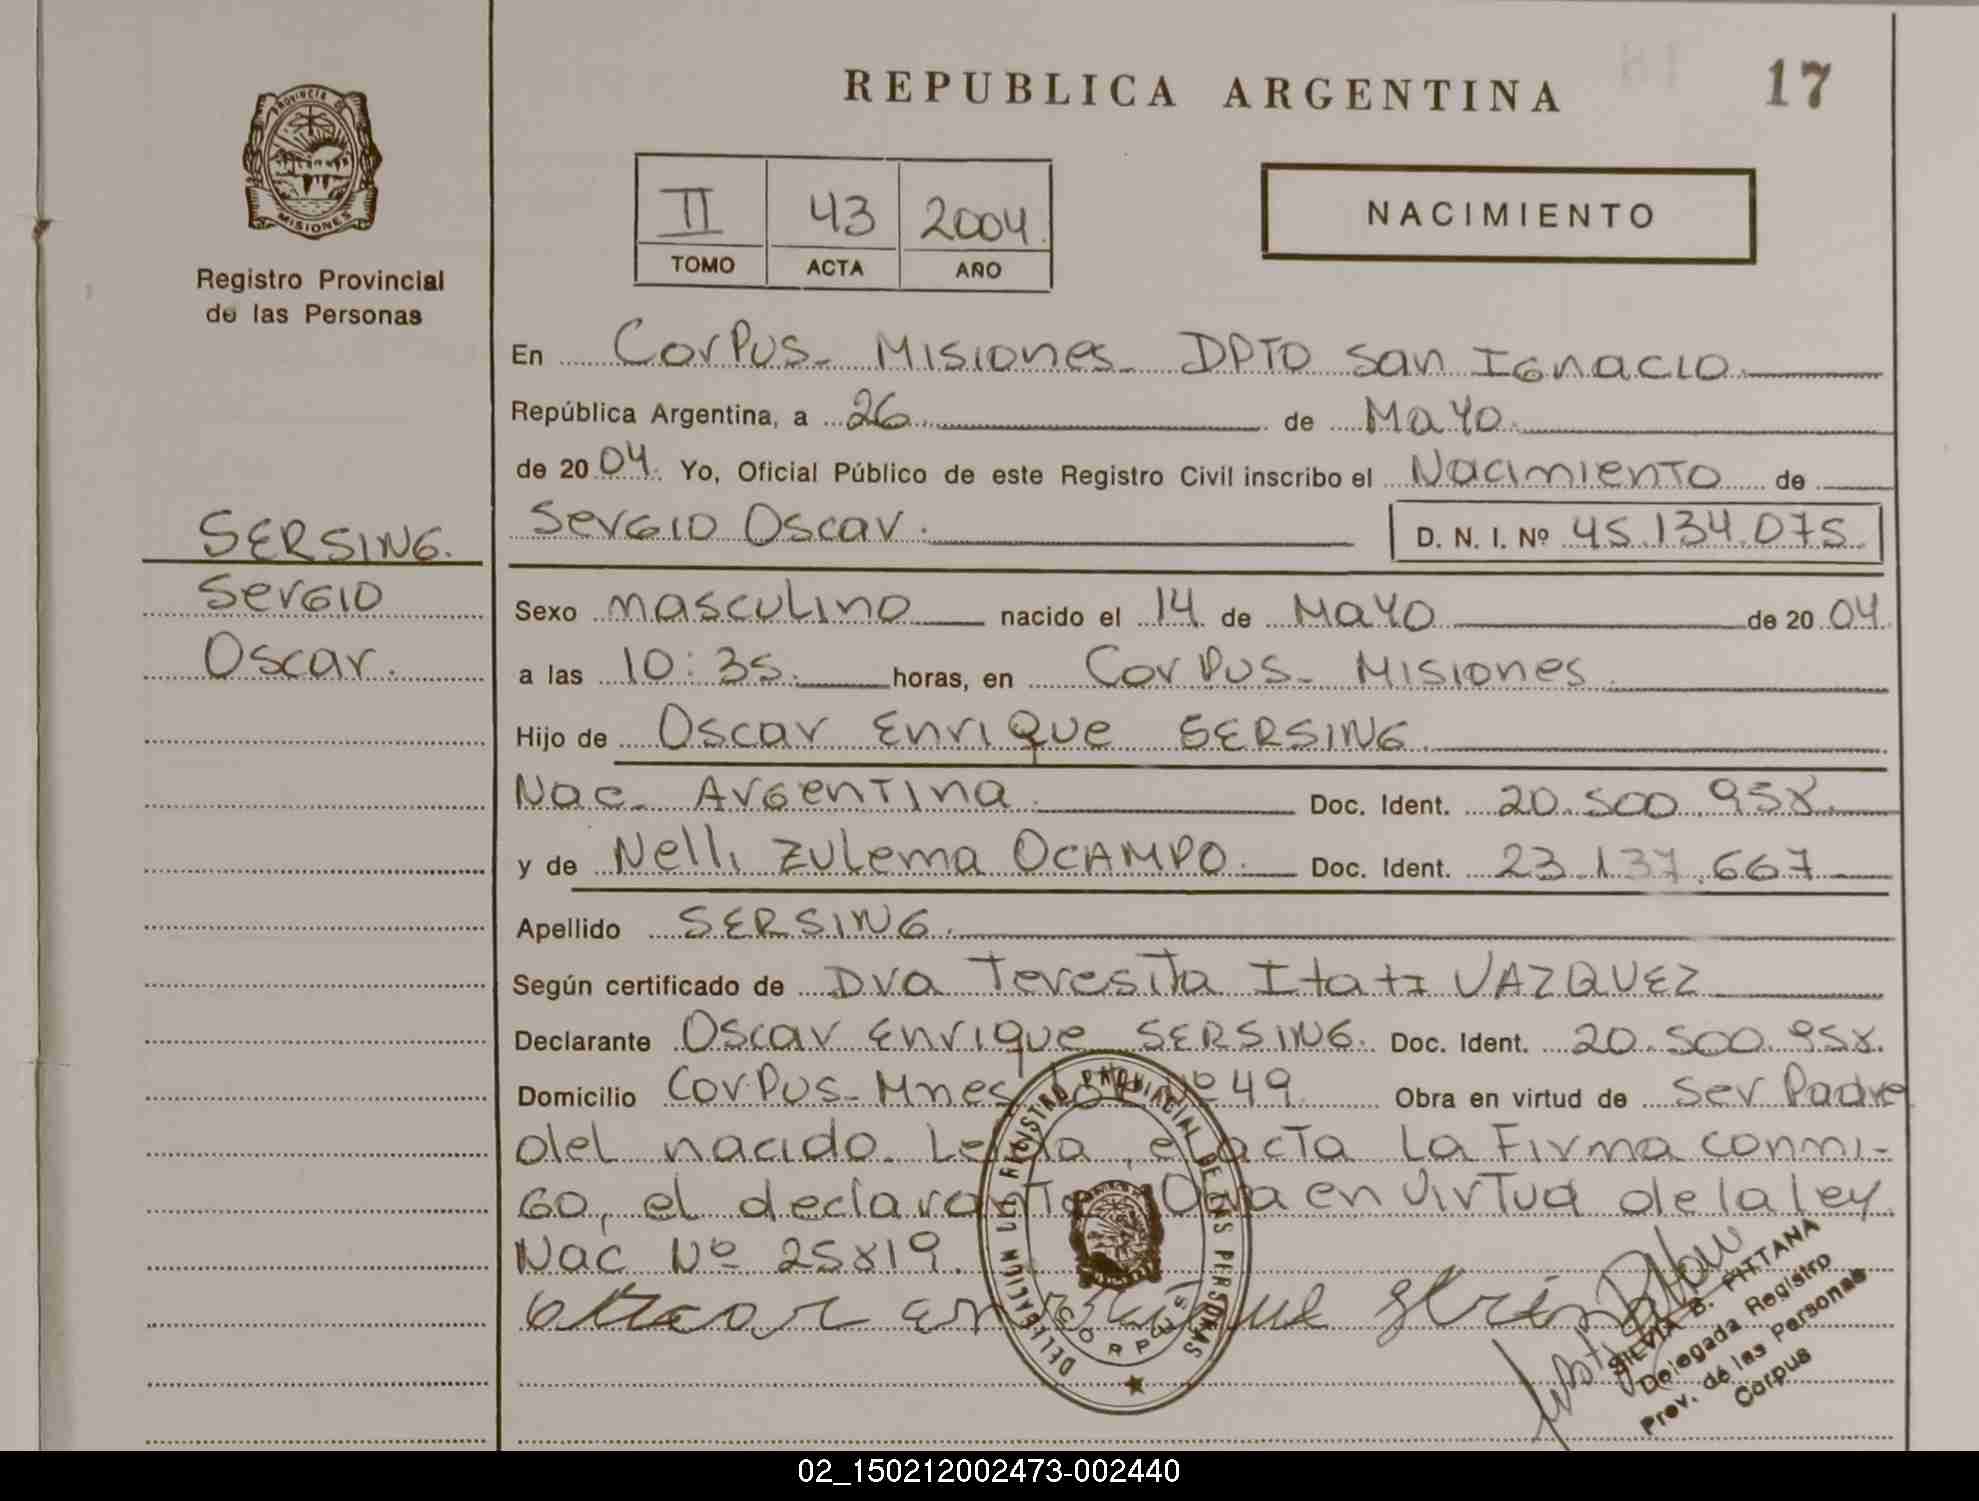 REPUBLICA ARGENTINA 17
PROVINCIA DE
MISIONES
Registro Provincial
de las Personas
II 43 2004
TOMO ACTA AÑO
NACIMIENTO
En Corpus - Misiones DPTO San Ignacio
República Argentina, a 26 de Mayo
de 2004. Yo, Oficial Público de este Registro Civil inscribo el Nacimiento de
Sergio Oscar. D. N. I. Nº 45.134.075
SERSING.
Sergio
Oscar.
Sexo masculino nacido el 14 de Mayo de 2004.
a las 10:35. horas, en Corpus - Misiones
Hijo de Oscar Enrique SERSING
Nac. Argentina. Doc. Ident. 20.500.958.
y de Nelli Zulema OCAMPO. Doc. Ident. 23.137.667
Apellido SERSING.
Según certificado de Dra Teresita Itati VAZQUEZ
Declarante Oscar Enrique SERSING. Doc. Ident. 20.500.958.
Domicilio Corpus - Mnes Lote Nº 49 Obra en virtud de Ser Padre
del nacido. Leida, el acta La Firma conmi-
go, el declarante. Dna en Virtud de la ley
Nac Nº 25819.
DELEGACION DEL REGISTRO PROVINCIAL DE LAS PERSONAS
CORPUS
SILVIA B. PITTANA
Delegada Registro
Prov. de las Personas
Corpus
02_150212002473-002440